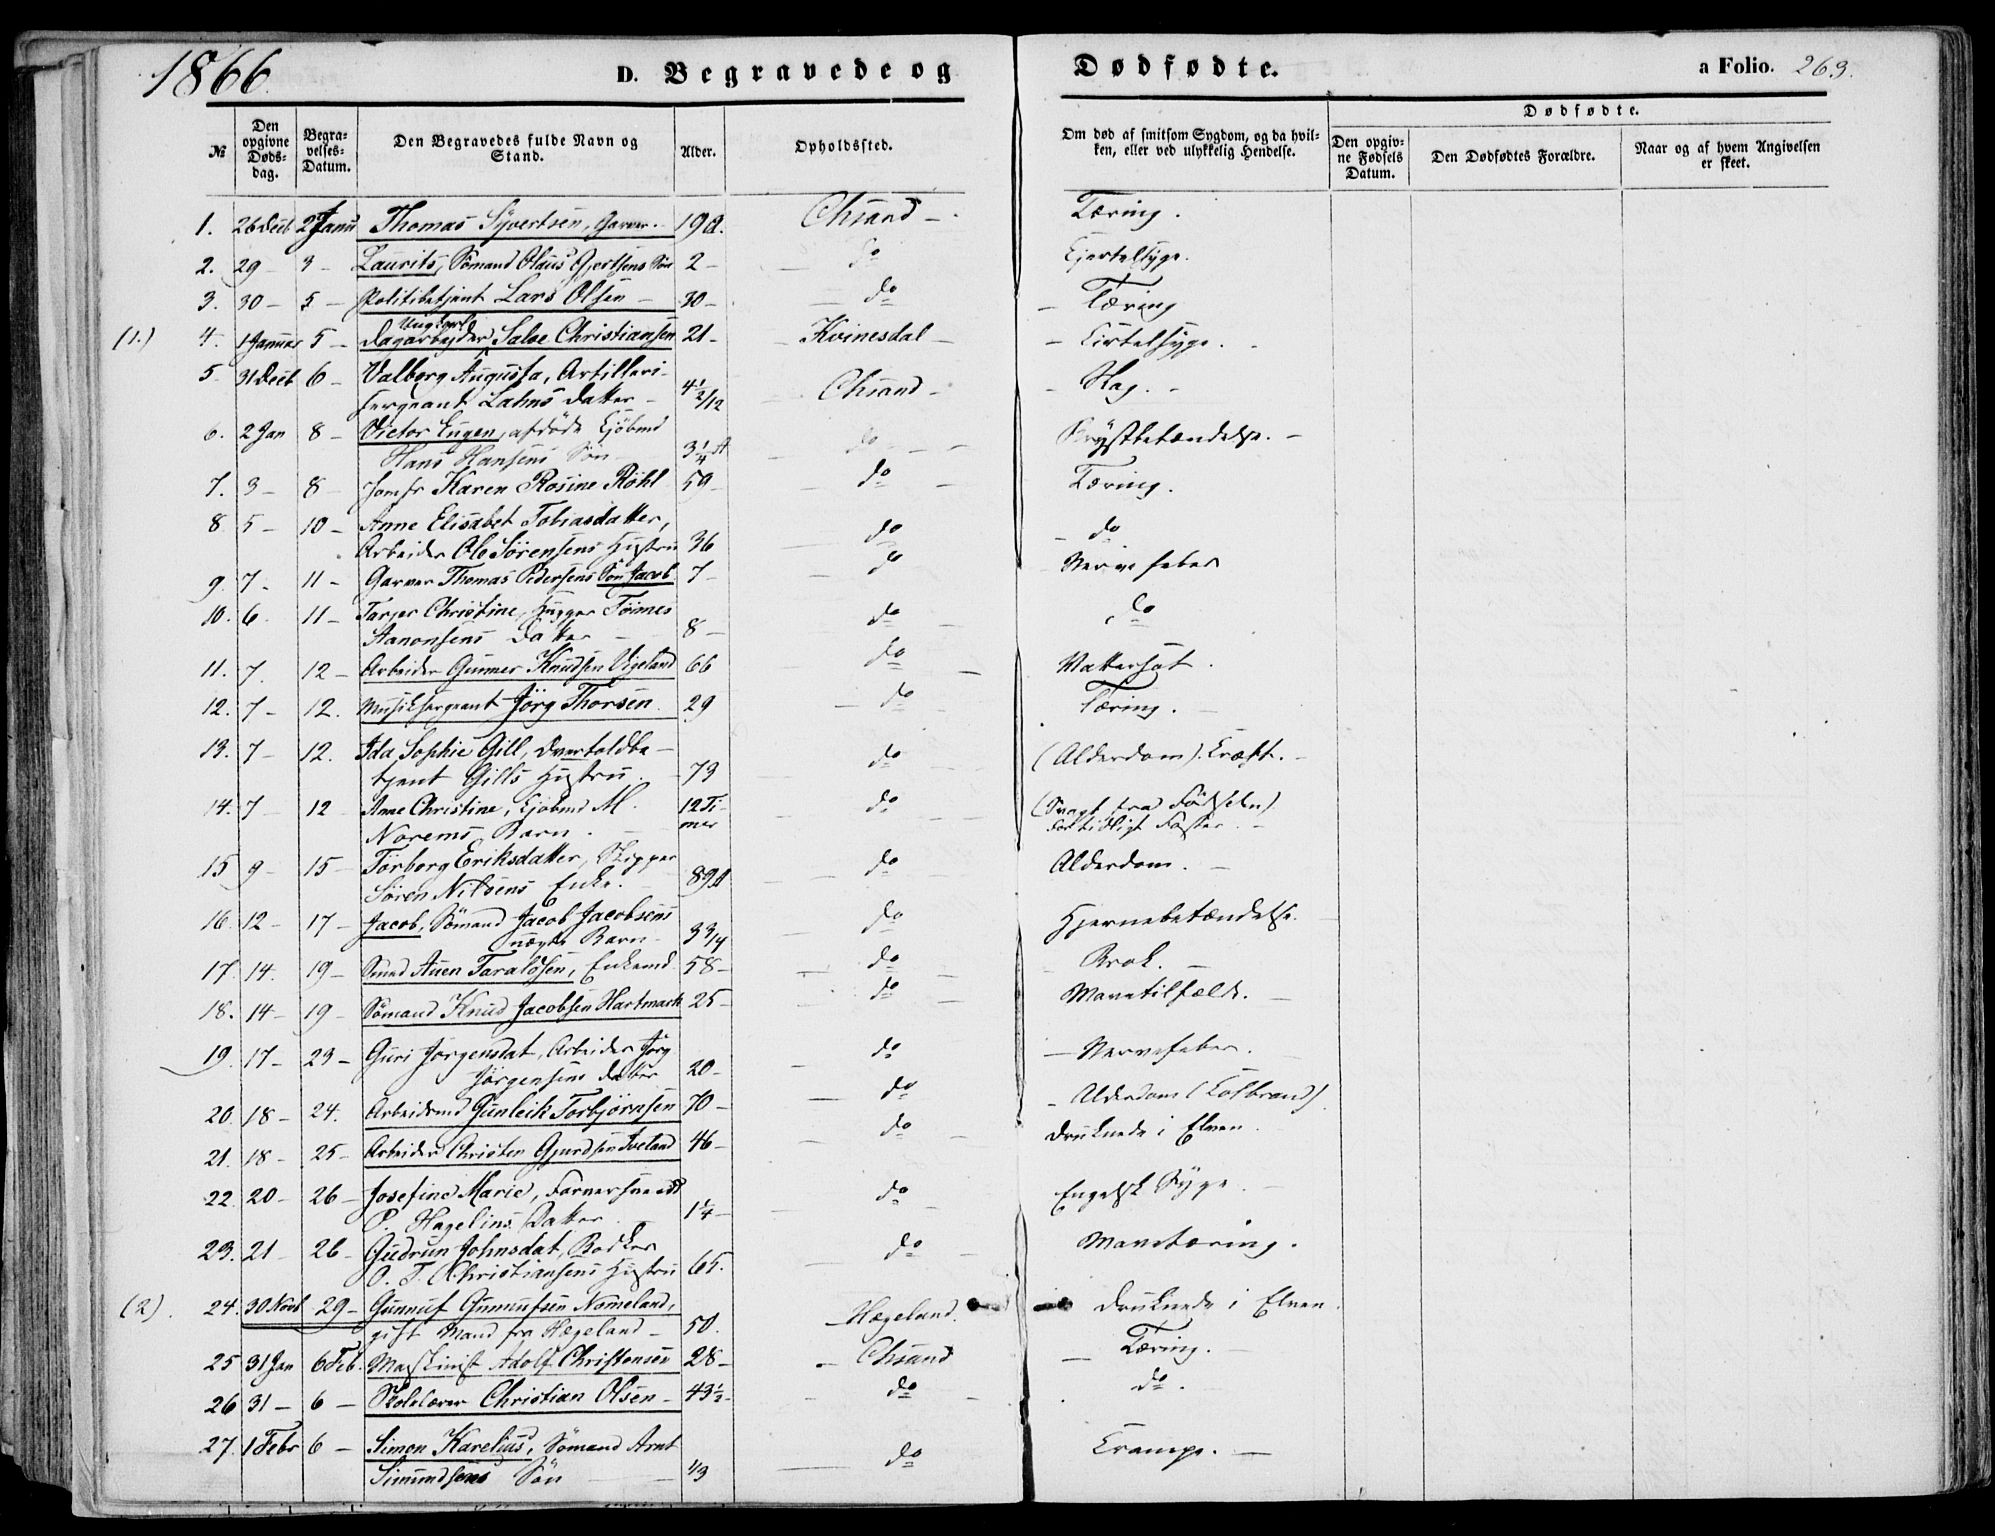 1866. D. Begravede og Dødfødte. a Folio. 263.
№ Den opgivne Døds-dag. Begra-velses-Datum. Den Begravedes fulde Navn og Stand. Alder. Opholdssted. Om død af smitsom Sygdom, og da hvil-ken, eller ved ulykkelig Hendelse. Dødfødte. Den opgiv-ne Fødsels Datum. Den Dødfødtes Forældre. Naar og af hvem Angivelsen er skeet.
1. 26 Decb 2 Janu Thomas Syvertsen, Garver. 19 A. Chsand Tæring.
2. 29 - 3 - Laurits, Sömand Olaus Gjertsens Sön 2 - do Kjertelsyge.
3. 30 - 5 - Politibetjent Lars Olsen - 30 - do Tæring
Ungkarl
(1.) 4. 1 Januar 5 - Dagarbejder Salve Christiansen 21 - Kvinesdal - Kirtelsyge.
5. 31 Decb 6 - Valborg Augusta, Artilleri-
sergeant Lahns Datter - 4½/12 Chsand - Slag. -
6. 2 Jan 8 - Victor Eugen, afdöde Kjöbmd
Hans Hansens Sön 3¼ A do Brystbetændelse. -
7. 3 - 8 - Jomfr Karen Rosine Röhl 59 - do Tæring.
8 5 - 10 - Anne Elisabet Tobiasdatter,
Arbeider Ole Sörensens Hustru 36 do do
9. 7 - 11 - Garver Thomas Pedersens Sön Jacob. 7 - do Nervefeber
10. 6. 11 - Tarjer Christine, Hugger Töimes
Aanonsens Datter 8 - do do
11. 7. 12 - Arbeider Gunner Knudsen Vigeland 66 do Vattersot.
12. 7 - 12. Musiksergeant Jörg Thorsen. 29 do Tæring.
13. 7 - 12. Ida Sophie Gill, Overtoldbe-
tjent Gills Hustru. - 73 do (Alderdom). Kræft. -
14. 7 12 Anne Christine, Kjöbmd M. 12 Ti- do (Svagt fra Födselen)
Norems Barn. mer For tidligt Foster. -
15 9 - 15 - Torborg Eriksdatter, Skipper
Sören Nilsens Enke. 89 A do Alderdom.
16. 12 - 17 - Jacob, Sömand Jacob Jacobsens
uægte Barn - 3 3/4 do Hjernebetændelse.
17. 14. 19 - Smed Auen Taraldsen, Enkemd. 58 - do Brok.
18. 14 - 19 - Sömand Knud Jacobsen Hartmark 25 - do Mavetilfælde.
19. 17 - 23 - Guri Jörgensdat, Arbeider Jörg
Jörgensens Datter 20 - do - Nervefeber.
20. 18 - 24. Arbeidsmd Gunleik Torbjörnsen 70 - do - Alderdom (Kolbrand)
21. 18 - 25 - Arbeider Christen Gjurdsen Iveland 46 - do Druknede i Elven.
22. 20 - 26 - Josefine Marie, Farversvend
P. Hagelins Datter. 1¼ - do Engelsk Syge.
23. 21 - 26 - Gudrun Johnsdat, Bödker
O. T. Christiansens Hustru 65. do Mavetæring.
(2). 24. 30 Novb 29 - Gunnuf Gunnufsen Nomeland,
gift Mand fra Hægeland - 50. - Hægeland. Druknede i Elven.
25 31 Jan 6 Feb. Maskinist Adolf Christensen 28 - - Chsand Tæring.
26 31 - 6 - Skolelærer Christian Olsen - 43½ - do do.
27. 1 Febr 6 - Simon Karelius, Sömand Arnt
Simundsens Sön 1/3 do Krampe.